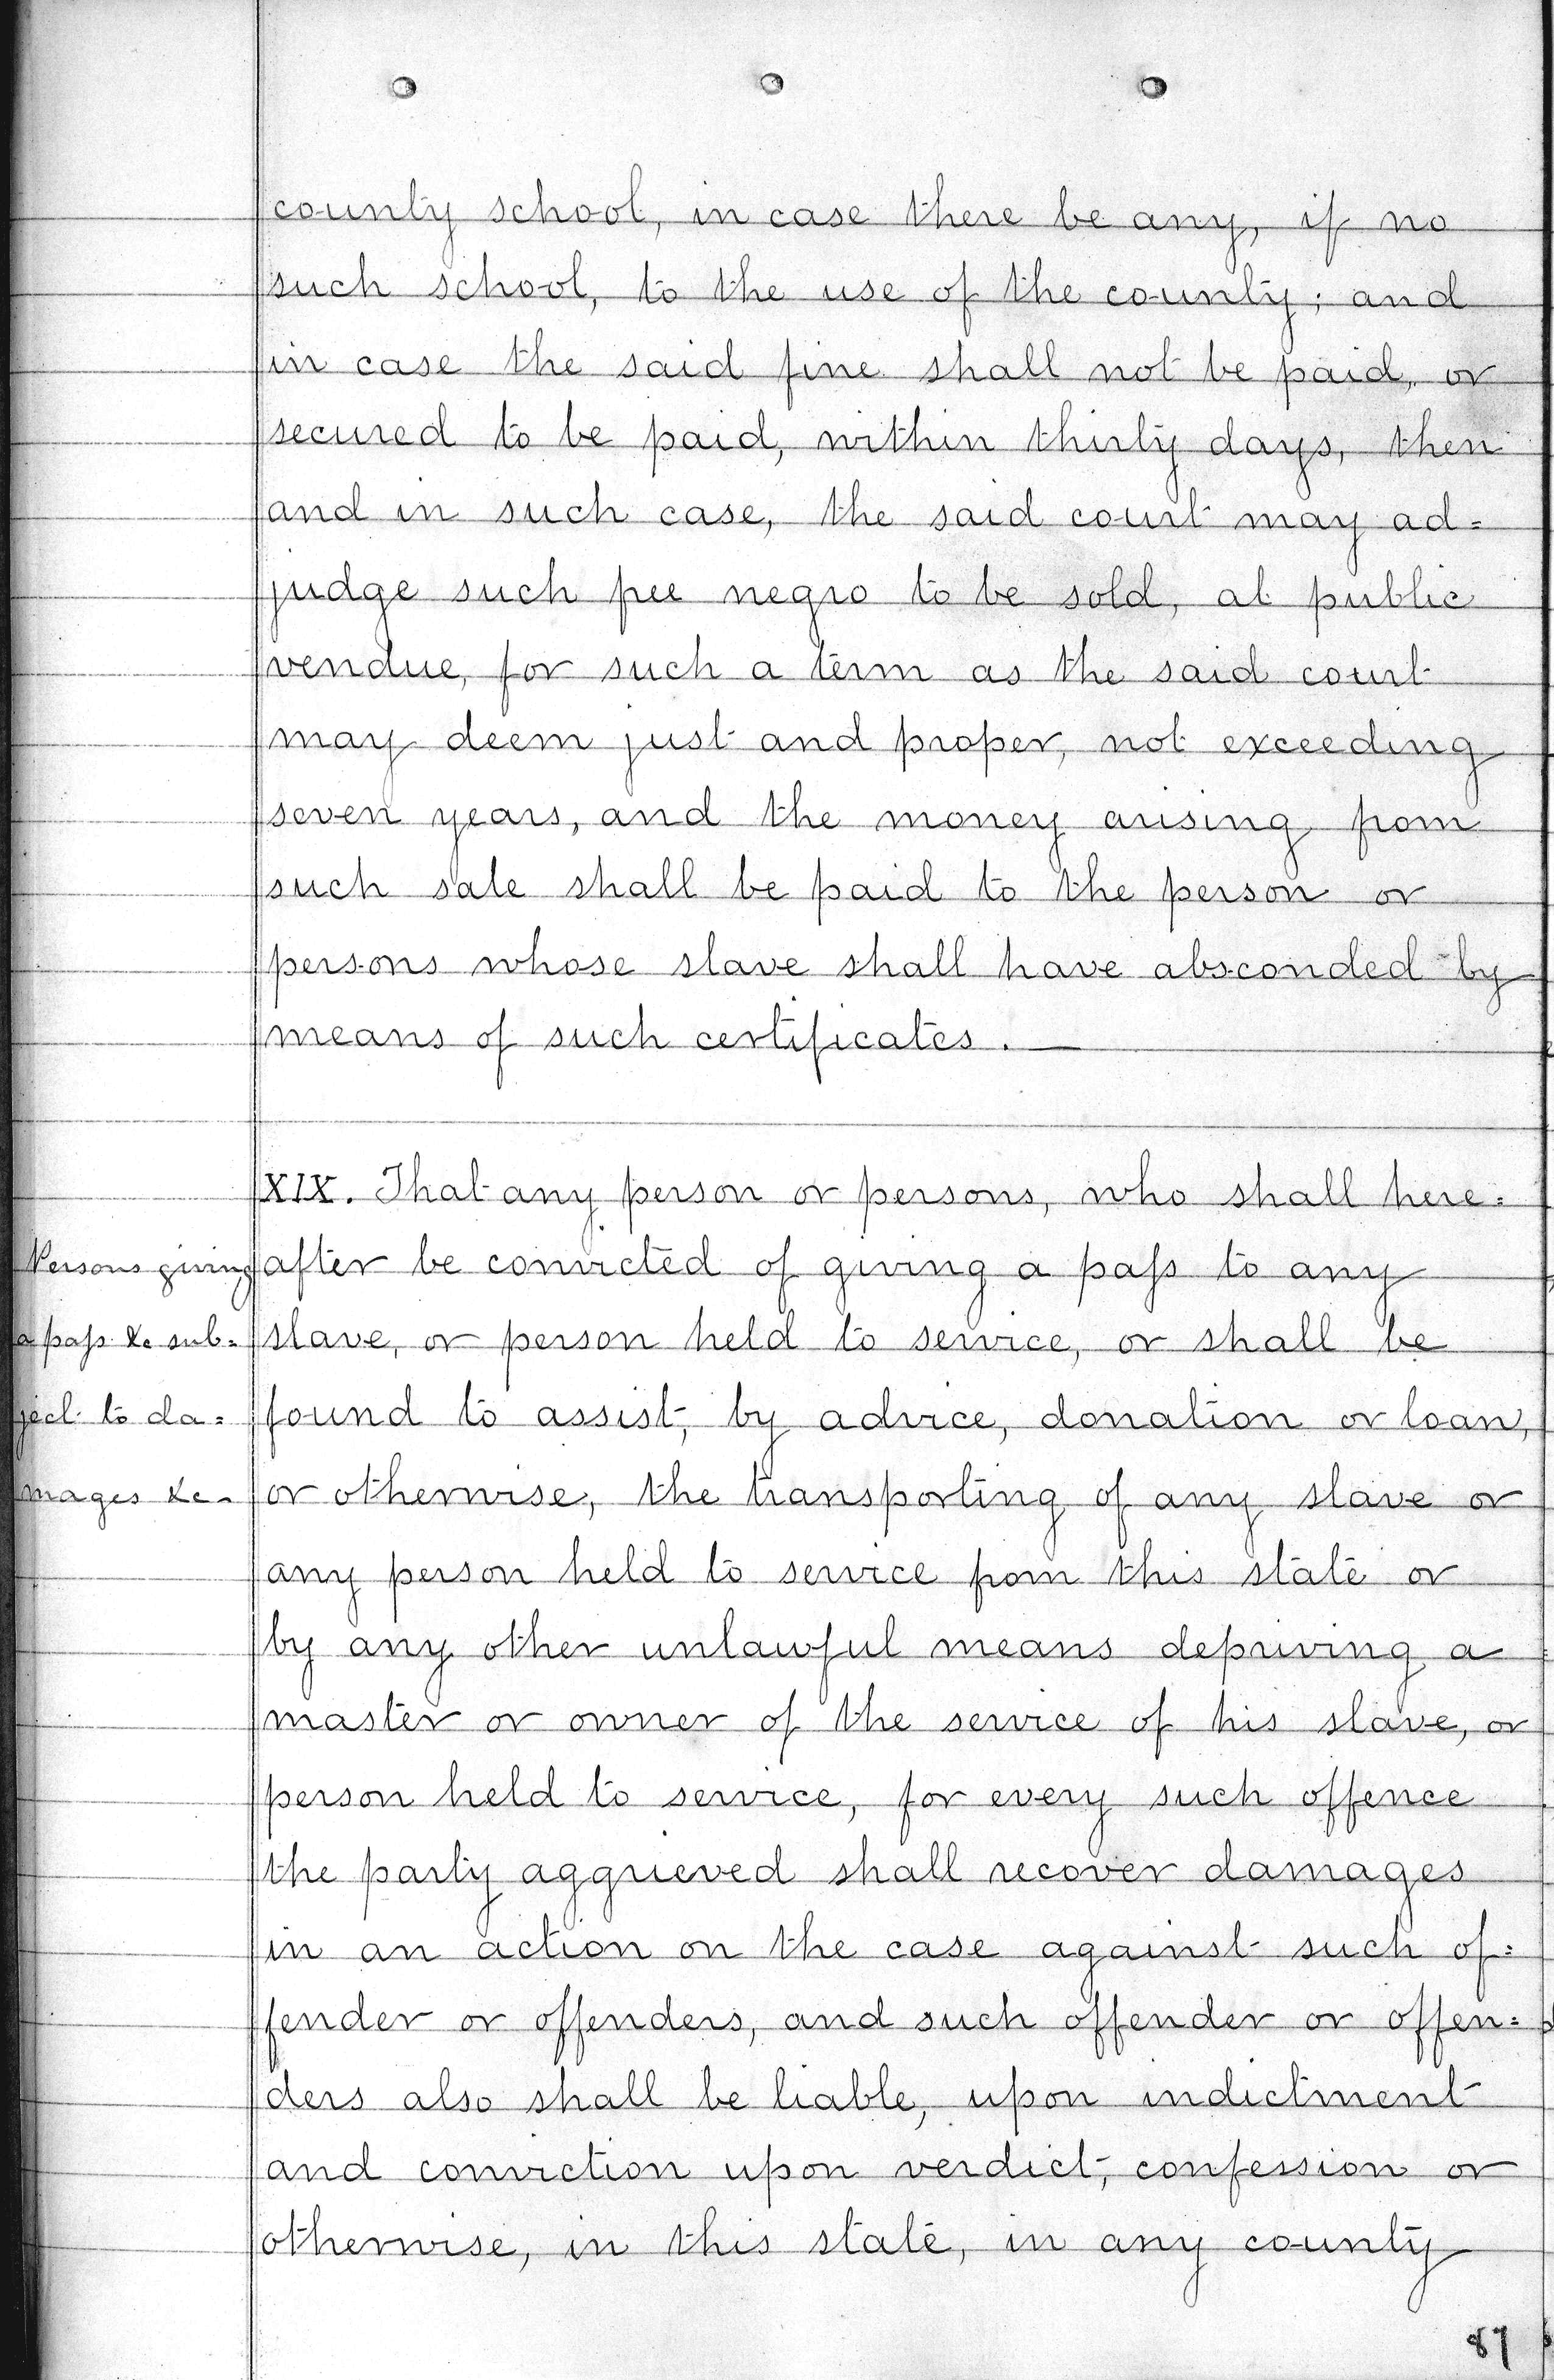 county school, in case there be any, if no
such school, to the use of the county; and
in case the said fine shall not be paid, or
secured to be paid, within thirty days, then
and in such case, the said court may ad=
judge such free negro to be sold, at public
vendue, for such a term as the said court
may deem just and proper, not exceeding
seven years, and the money arising from
such sale shall be paid to the person or
persons whose slave shall have absconded by
means of such certificates. —
XIX. That any person or persons, who shall here=
Persons giving
a paſs &c sub=
ject to da=
mages &c.
after be convicted of giving a paſs to any
slave, or person held to service, or shall be
found to assist, by advice, donation or loan,
or otherwise, the transporting of any slave or
any person held to service from this state or
by any other unlawful means depriving a
master or owner of the service of his slave, or
person held to service, for every such offence
the party aggrieved shall recover damages
in an action on the case against such of=
fender or offenders, and such offender or offen=
ders also shall be liable, upon indictment
and conviction upon verdict, confession or
otherwise, in this state, in any county
87